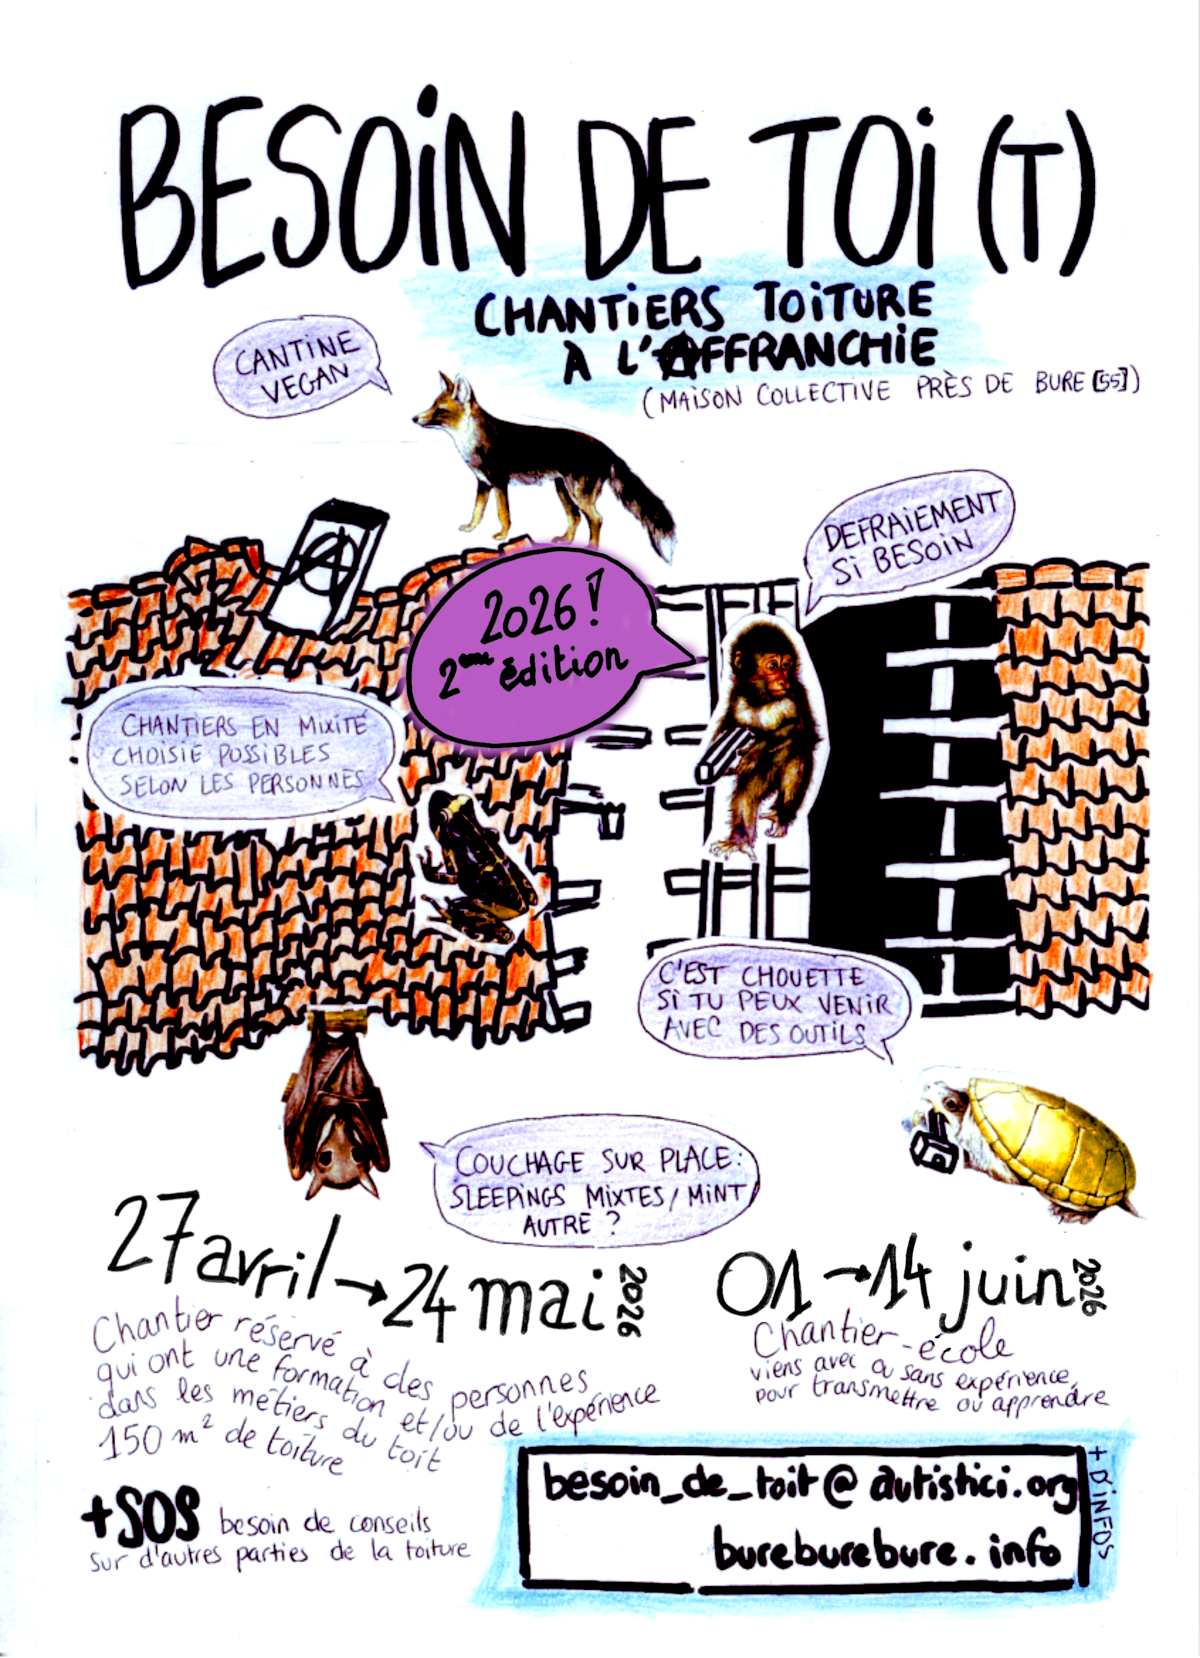 BESOiN DE TOi (T)
CHANTiERS TOiTURE
À L'AFFRANCHiE
(MAiSON COLLECTiVE PRÈS DE BURE [55])
CANTiNE
VEGAN
DEFRAiEMENT
Si BESOiN
2026 !
2ème édition
CHANTiERS EN MiXiTÉ
CHOiSiE POSSiBLES
SELON LES PERSONNES
C'EST CHOUETTE
Si TU PEUX VENiR
AVEC DES OUTiLS
COUCHAGE SUR PLACE :
SLEEPiNGS MiXTES / MiNT
AUTRE ?
27 avril → 24 mai 2026
Chantier réservé à des personnes
qui ont une formation et/ou de l'expérience
dans les métiers du toit
150 m² de toiture
+ SOS besoin de conseils
sur d'autres parties de la toiture
01 → 14 juin 2026
Chantier-école
viens avec ou sans expérience,
pour transmettre ou apprendre
besoin_de_toit@autistici.org
bureburebure.info
+ D'iNFOS